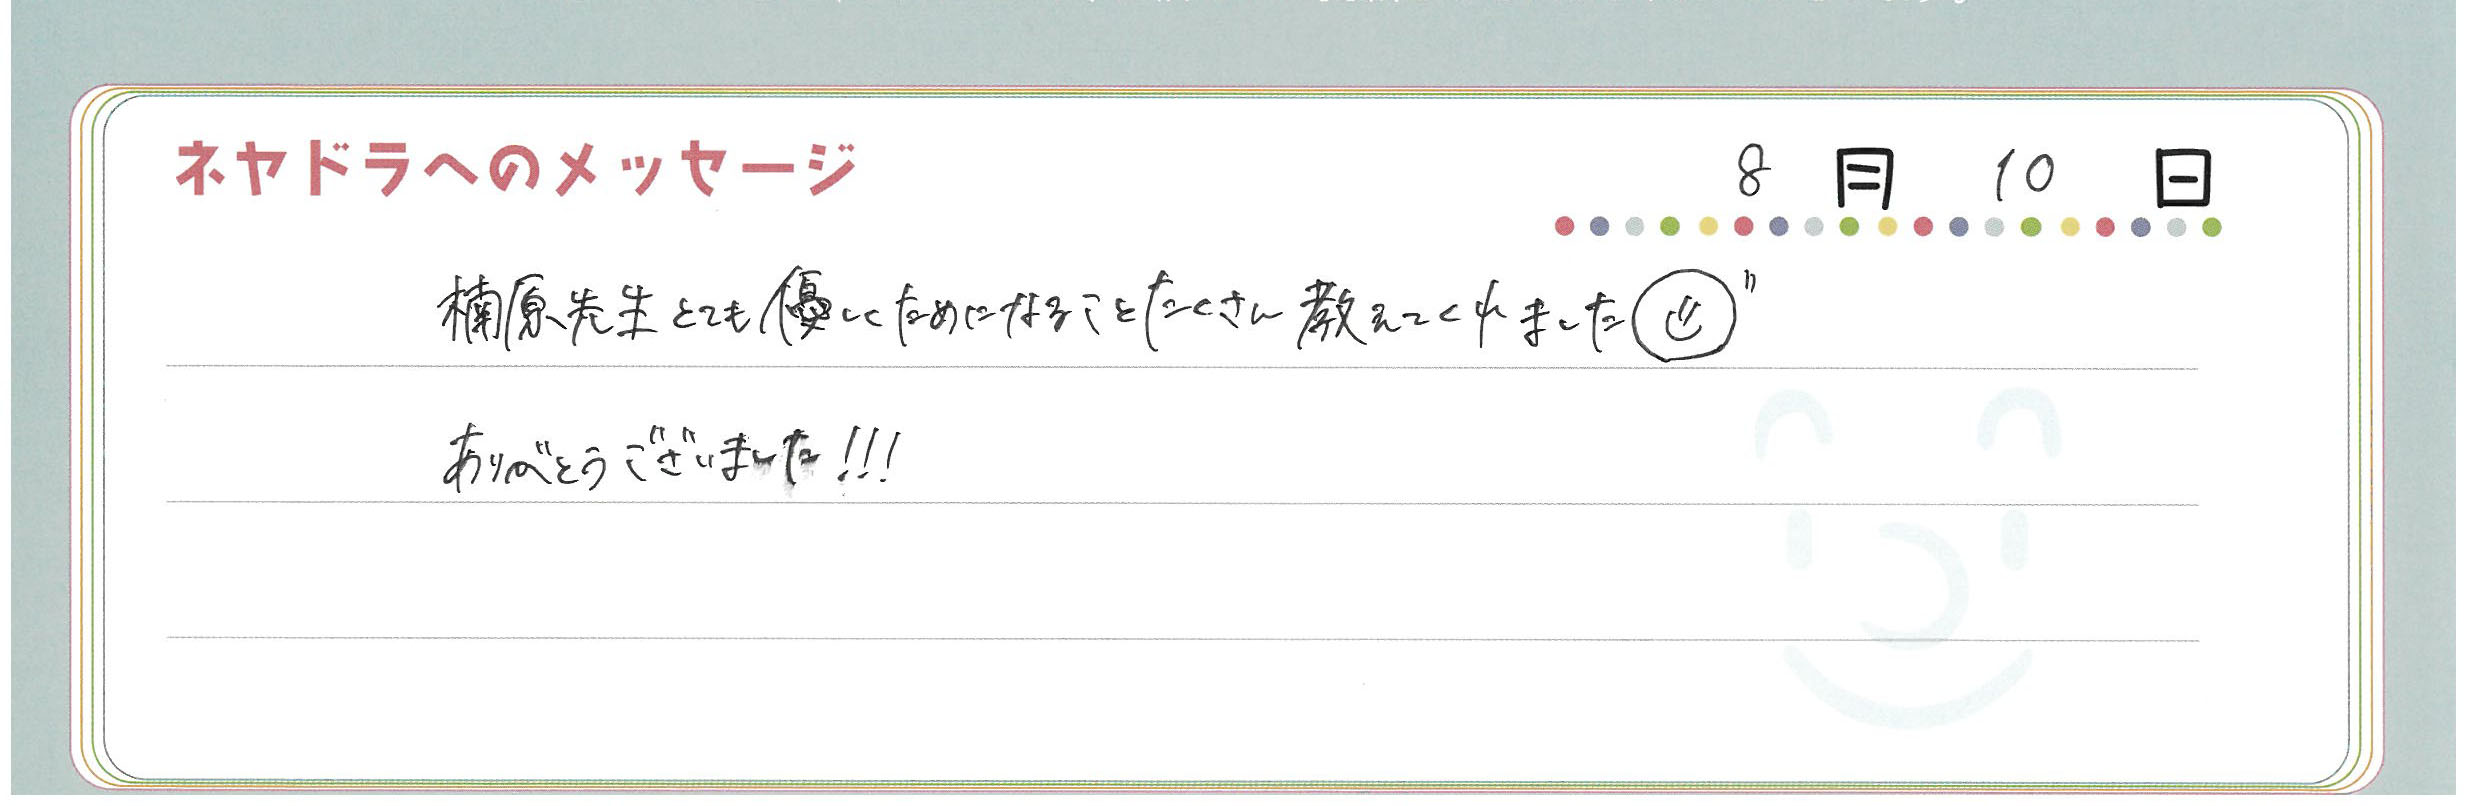 ネヤドラへのメッセージ
8月10日
楠原先生とても優しくためになることたくさん教えてくれました
ありがとうございました!!!